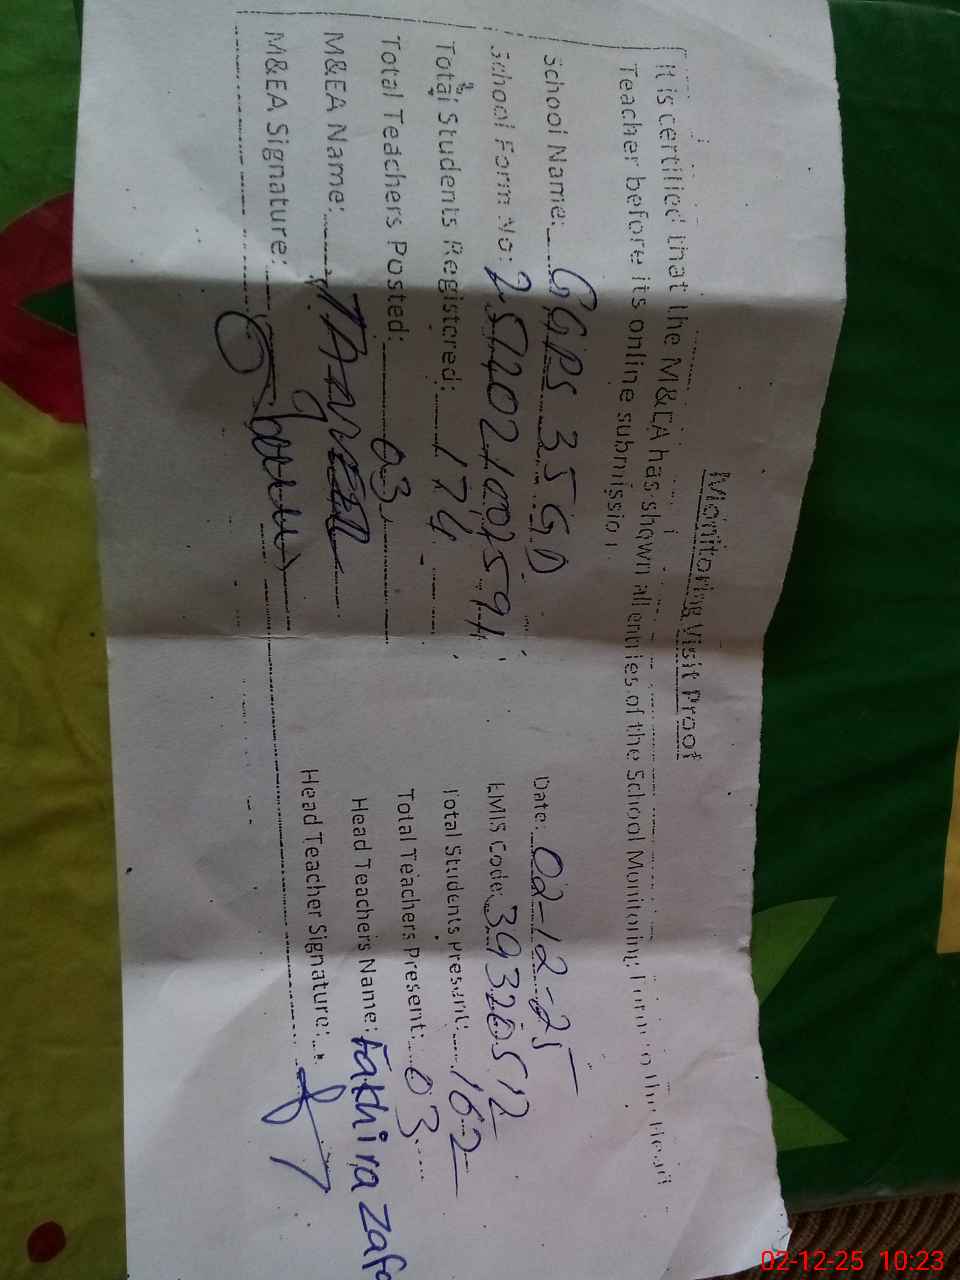 Monitoring Visit Proof
It is certified that the M&EA has shown all entries of the School Monitoring Form to the Head
Teacher before its online submission.
School Name: GGPS 35 GD Date: 02-12-25
School Form No: EMIS Code: 39320512
Total Students Registered: 174 Total Students Present: 162
Total Teachers Posted: 03 Total Teachers Present: 03
M&EA Name: Head Teachers Name: Fakhira Zafa
M&EA Signature: Head Teacher Signature:
02-12-25 10:23